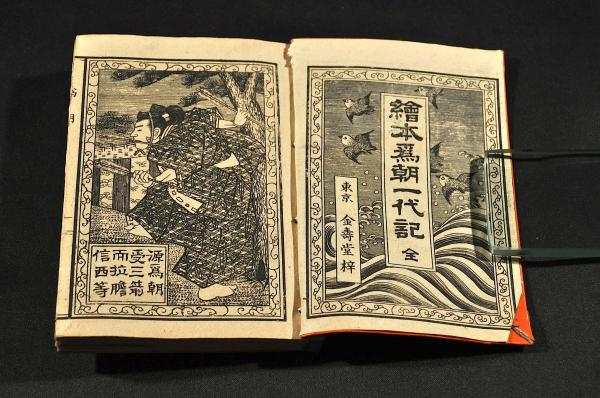 繪本爲朝一代記 全
東京 金壽堂梓
源爲朝
受三箭
而拉膽
信西等